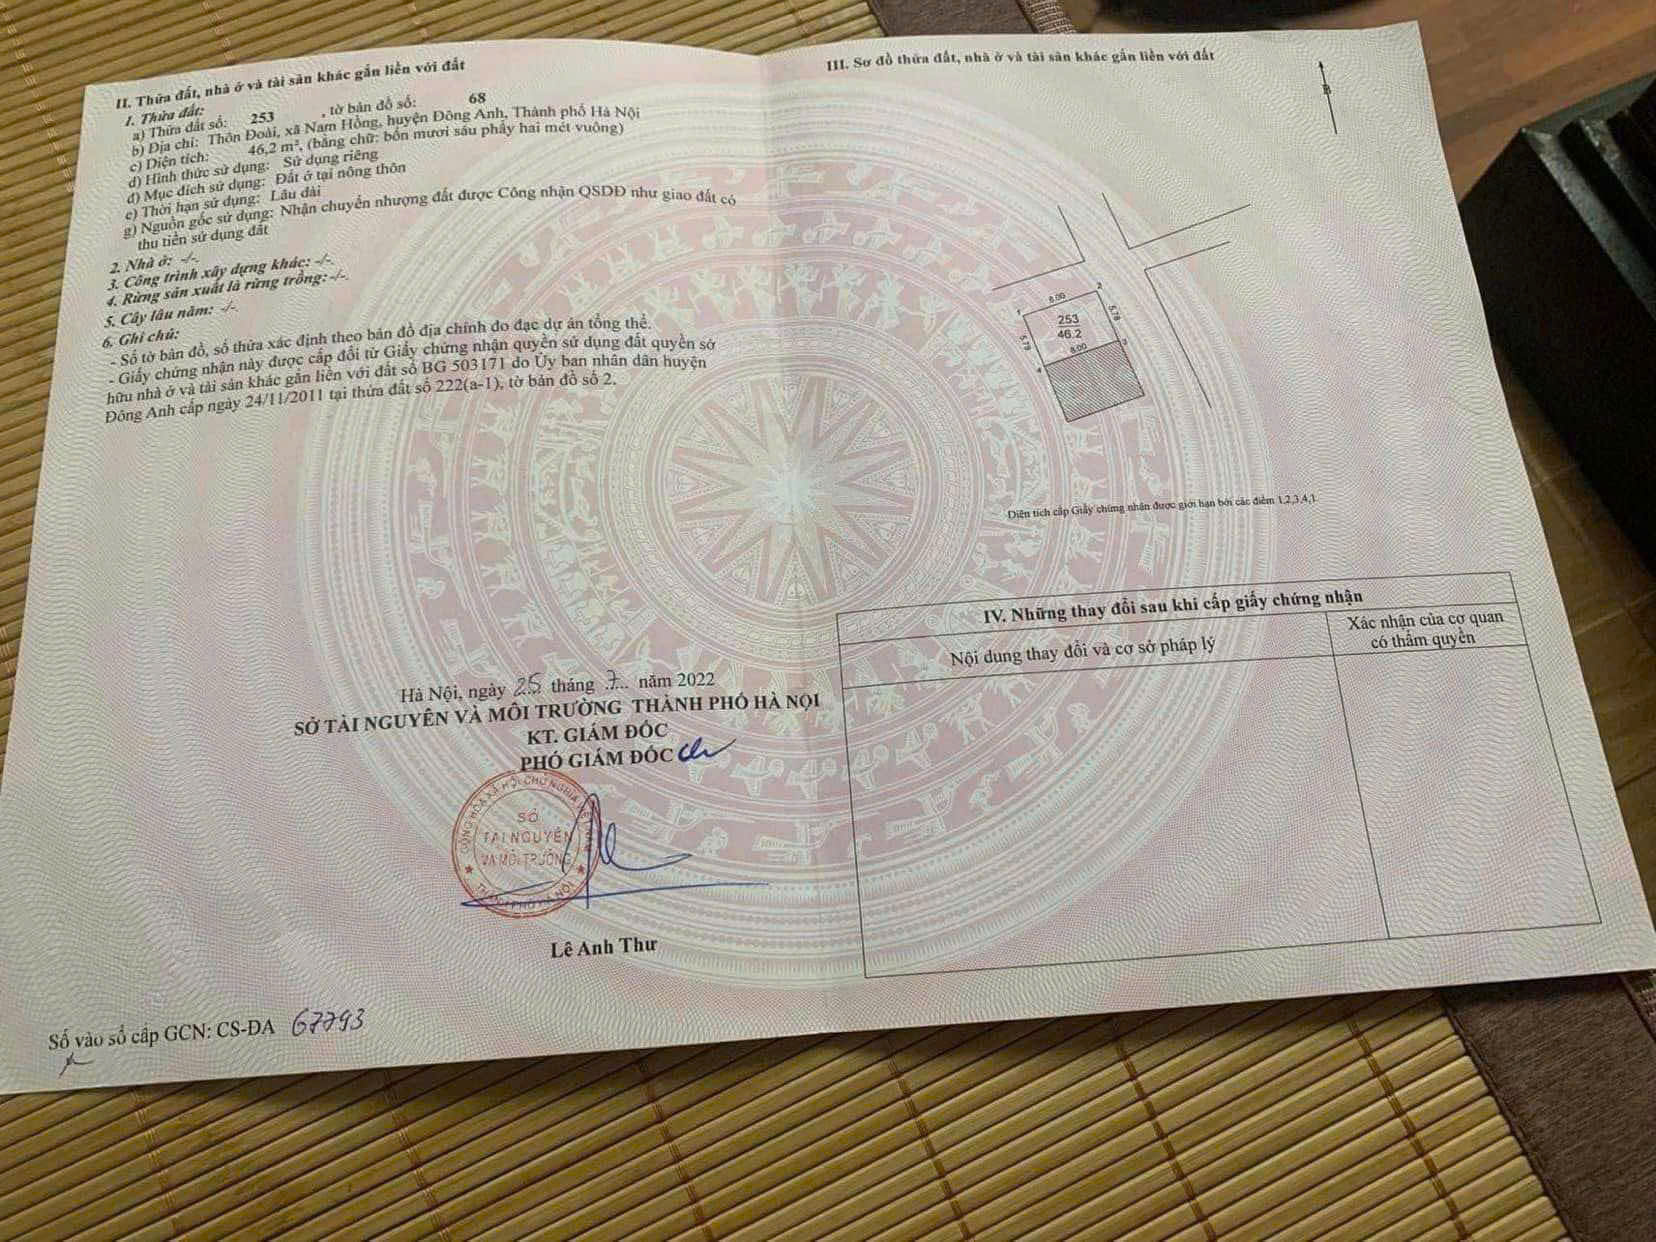 II. Thửa đất, nhà ở và tài sản khác gắn liền với đất
1. Thửa đất:
a) Thửa đất số: 253 , tờ bản đồ số: 68
b) Địa chỉ: Thôn Đoài, xã Nam Hồng, huyện Đông Anh, Thành phố Hà Nội
c) Diện tích: 46,2 m², (bằng chữ: bốn mươi sáu phẩy hai mét vuông)
d) Hình thức sử dụng: Sử dụng riêng
đ) Mục đích sử dụng: Đất ở tại nông thôn
e) Thời hạn sử dụng: Lâu dài
g) Nguồn gốc sử dụng: Nhận chuyển nhượng đất được Công nhận QSDĐ như giao đất có
thu tiền sử dụng đất
2. Nhà ở: -/-.
3. Công trình xây dựng khác: -/-.
4. Rừng sản xuất là rừng trồng: -/-.
5. Cây lâu năm: -/-.
6. Ghi chú:
- Số tờ bản đồ, số thửa xác định theo bản đồ địa chính đo đạc dự án tổng thể.
- Giấy chứng nhận này được cấp đổi từ Giấy chứng nhận quyền sử dụng đất quyền sở
hữu nhà ở và tài sản khác gắn liền với đất số BG 503171 do Ủy ban nhân dân huyện
Đông Anh cấp ngày 24/11/2011 tại thửa đất số 222(a-1), tờ bản đồ số 2.
Hà Nội, ngày 25 tháng 7 năm 2022
SỞ TÀI NGUYÊN VÀ MÔI TRƯỜNG THÀNH PHỐ HÀ NỘI
KT. GIÁM ĐỐC
PHÓ GIÁM ĐỐC
CỘNG HÒA XÃ HỘI CHỦ NGHĨA VIỆT NAM
SỞ
TÀI NGUYÊN
VÀ MÔI TRƯỜNG
THÀNH PHỐ HÀ NỘI
Lê Anh Thư
Số vào sổ cấp GCN: CS-ĐA 67793
III. Sơ đồ thửa đất, nhà ở và tài sản khác gắn liền với đất
B
1
8.00
2
5.79
253
46.2
5.78
8.00
3
4
Diện tích cấp Giấy chứng nhận được giới hạn bởi các điểm 1,2,3,4,1.
IV. Những thay đổi sau khi cấp giấy chứng nhận
Nội dung thay đổi và cơ sở pháp lý
Xác nhận của cơ quan
có thẩm quyền